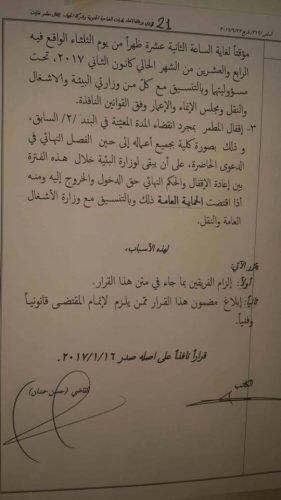 21
مؤقتاً لغاية الساعة الثانية عشرة ظهراً من يوم الثلثاء الواقع فيه
الرابع والعشرين من الشهر الحالي كانون الثاني ٢٠١٧، تحت
مسؤوليتها وبالتنسيق مع كلّ من وزارتي البيئة والاشغال
والنقل ومجلس الإنماء والإعمار وفق القوانين النافذة.
٣- إقفال المطمر بمجرد انقضاء المدة المعيّنة في البند /٢/ السابق،
و ذلك بصورة كلية بجميع أعماله إلى حين الفصل النهائي في
الدعوى الحاضرة، على أن يبقى لوزارة البيئة خلال هذه الفترة
بين إعادة الإقفال والحكم النهائي حق الدخول والخروج إليه ومنه
إذا اقتضت الحماية العامة ذلك وبالتنسيق مع وزارة الأشغال
العامة والنقل.
لهذه الأسباب،
تقرر الآتي:
أولاً: إلزام الفريقين بما جاء في متن هذا القرار.
ثانياً: إبلاغ مضمون هذا القرار ممّن يلزم لإتمام المقتضى قانونياً
وفنياً.
قراراً نافذاً على اصله صدر ٢٠١٧/١/١٦.
الكاتب
القاضي (حسن حمدان)